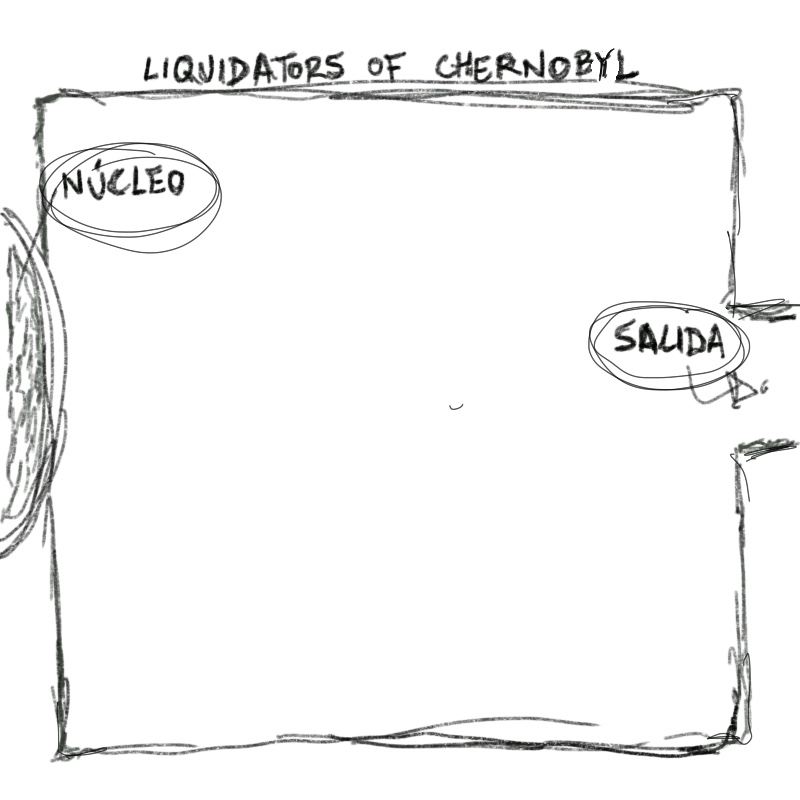 LIQUIDATORS OF CHERNOBYL
NÚCLEO
SALIDA